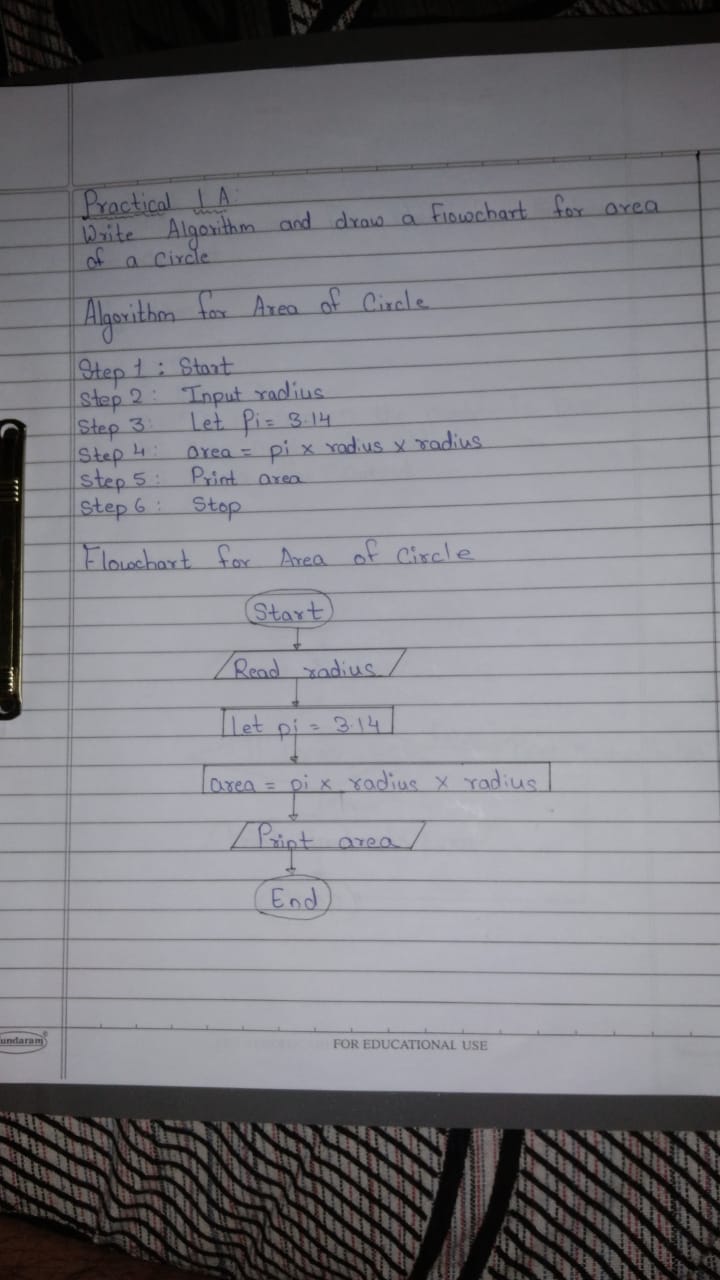 Practical 1 A
Write Algorithm and draw a Flowchart for area
of a Circle
Algorithm for Area of Circle
Step 1 : Start
Step 2 : Input radius
Step 3 : Let Pi = 3.14
Step 4 : area = pi x radius x radius
Step 5 : Print area
Step 6 : Stop
Flowchart for Area of Circle
Start
Read radius
let pi = 3.14
area = pi x radius x radius
Print area
End
undaram
FOR EDUCATIONAL USE